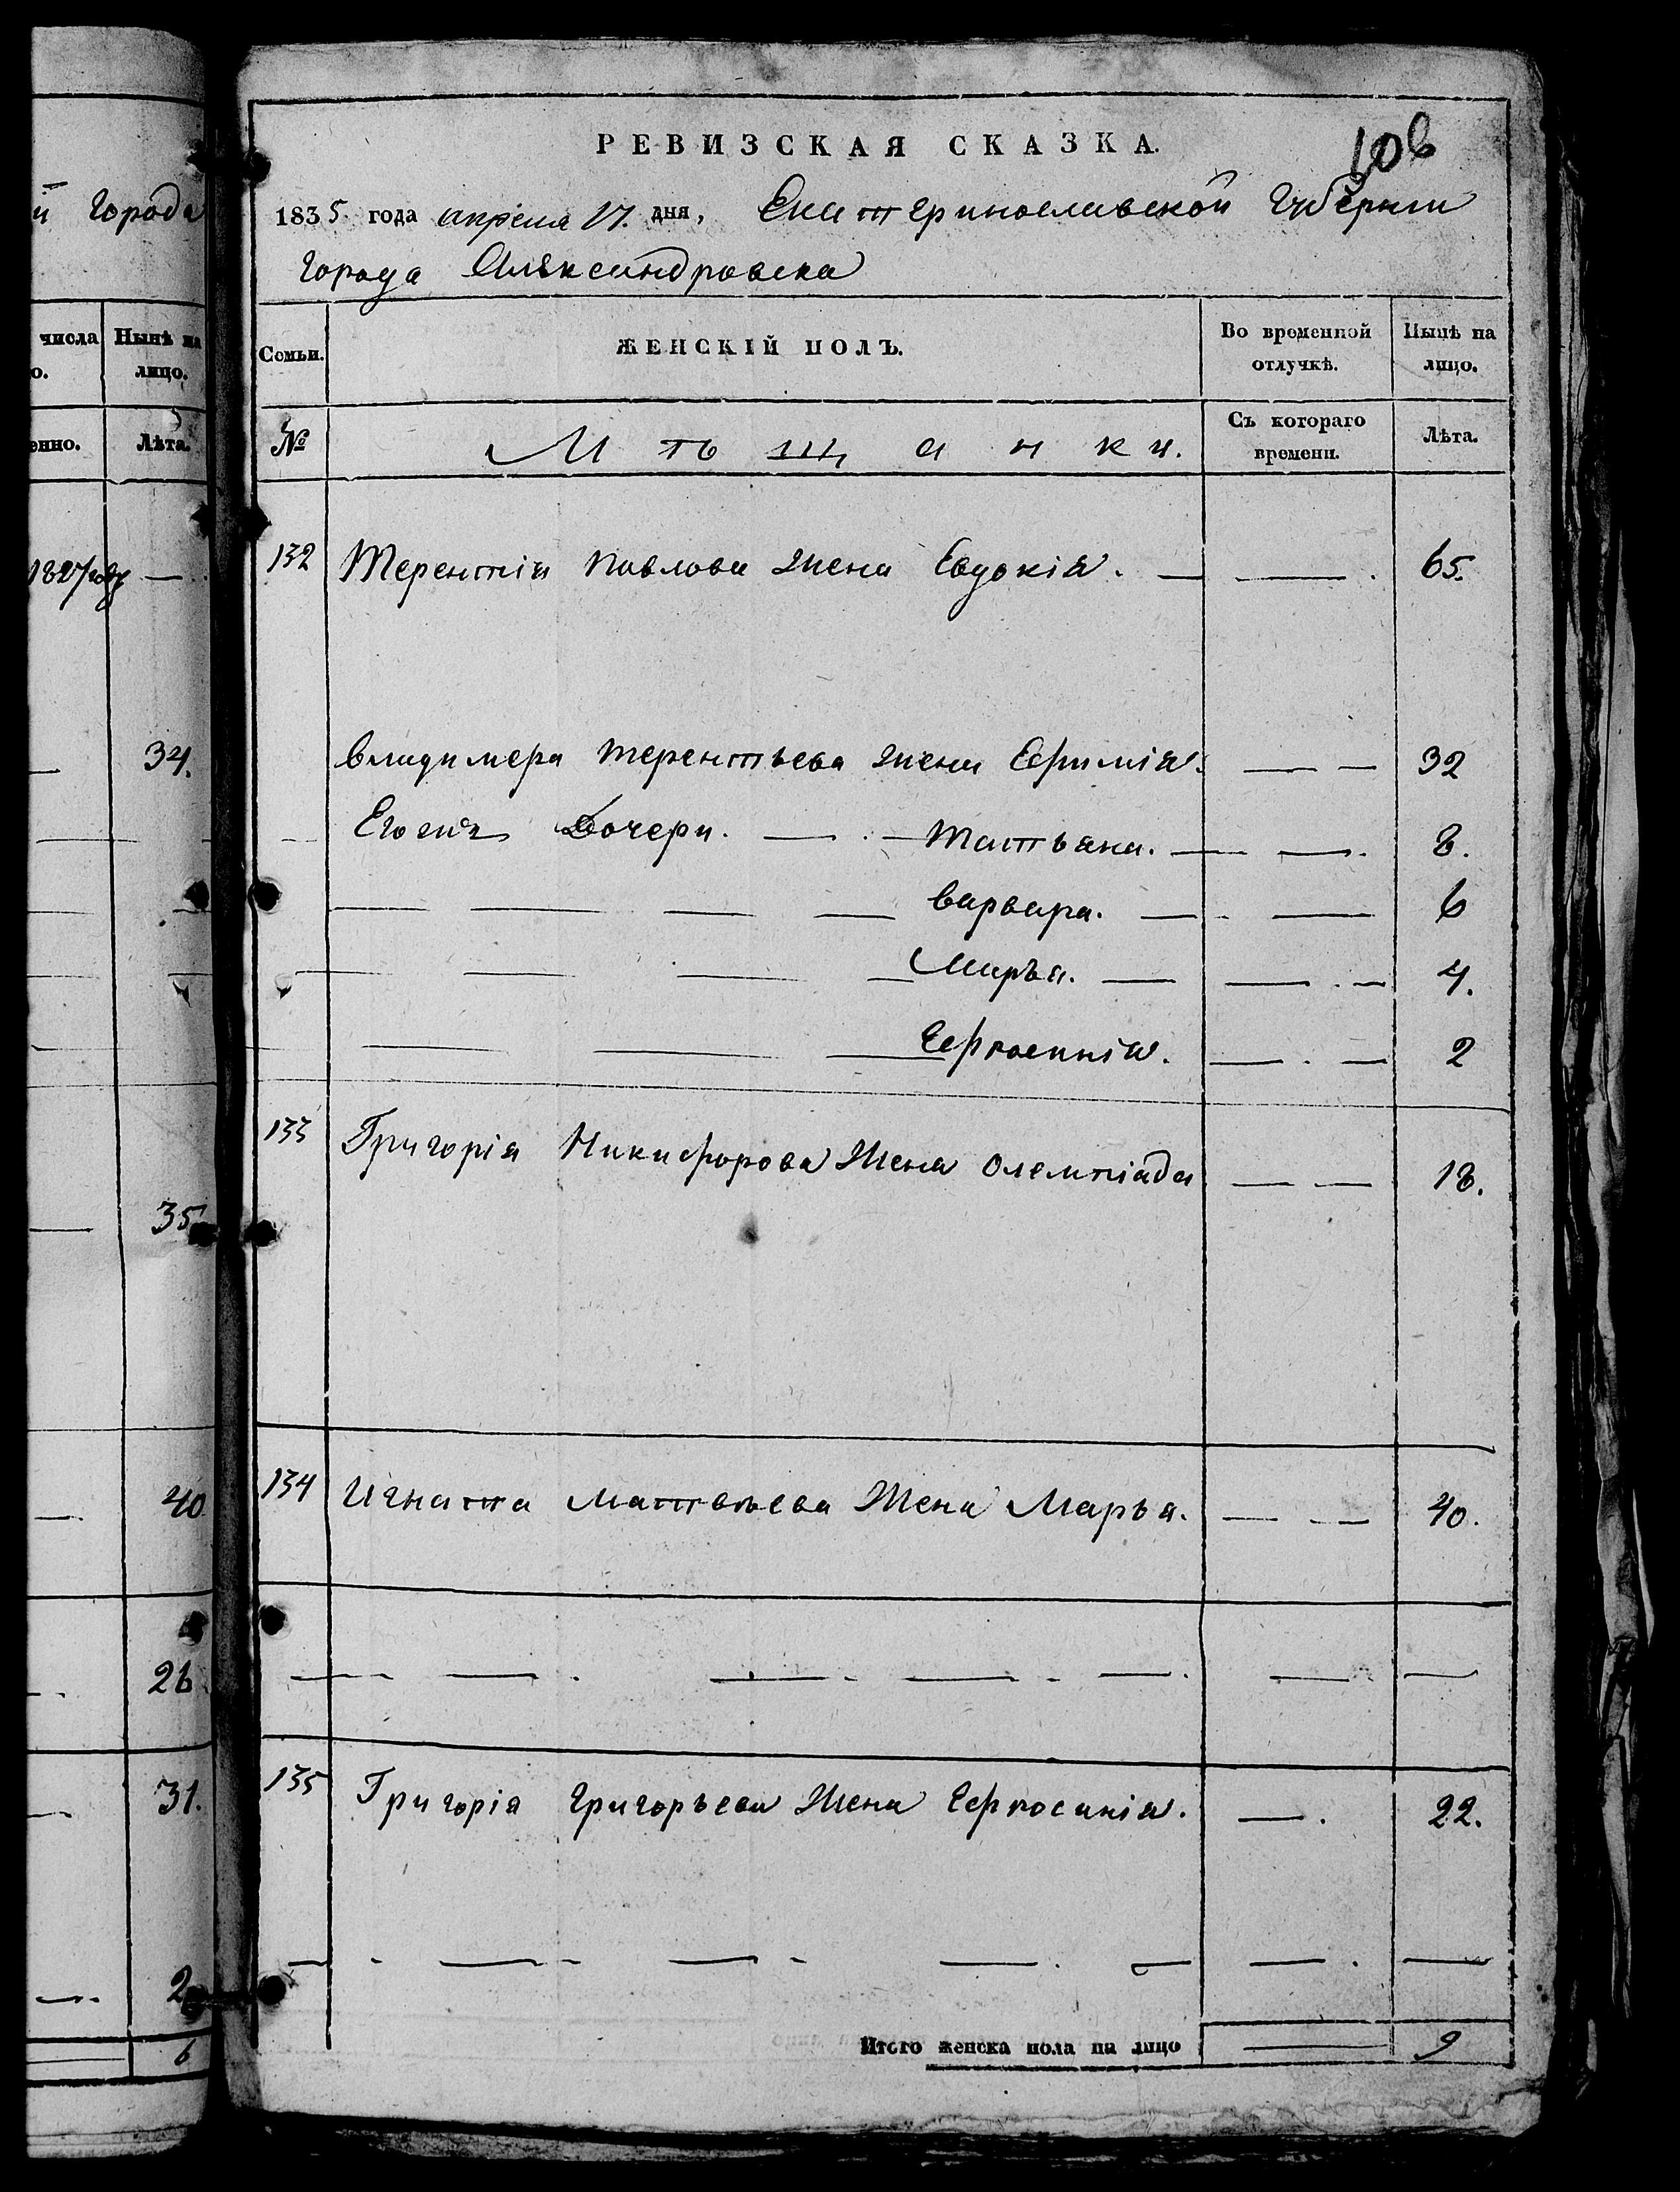 РЕВИЗСКАЯ СКАЗКА.
106
1835 года апреля 17. дня, Екатеринославской Губернии
города Александровска
Семьи.
ЖЕНСКІЙ ПОЛЪ.
Во временной отлучкѣ.
Нынѣ на лицо.
№
Мѣщанки.
Съ котораго времени.
Лѣта.
132 Терентія Павлова жена Евдокія. — — 65.
Владимера Терентьева жена Ефимія. — — 32
Его же Дочери. — — Татьяна. — — 8.
— — — — Варвара. — — 6
— — — — Марья. — — 4.
— — — Ефросинія. — — 2
133 Григорія Никифорова Жена Олемпіада — — 18.
134 Игната Матвѣева Жена Марья. — — 40.
— — — — — — —
135 Григорія Григорьева Жена Ефросинія. — 22.
— — — — — — —
Итого женска пола на лицо — 9
й Города
числа
о.
Нынѣ на лицо.
енно.
Лѣта.
1827 году —
— 34.
— 35
— 40
— 26
— 31.
— 2
— 6